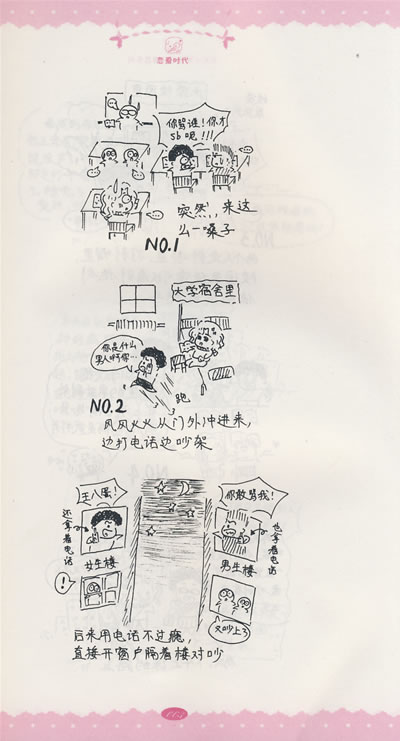 恋爱时代
你骂谁！你才
sb呢!!!
突然，来这
么一嗓子
NO.1
大学宿舍里
你是什么
男人啊你…
跑
NO.2
风风火火从门外冲进来，
边打电话边吵架
王八蛋！
你敢骂我！
还拿着电话
也拿着电话
女生楼
男生楼
！
又吵上了
后来用电话不过瘾，
直接开窗户隔着楼对吵